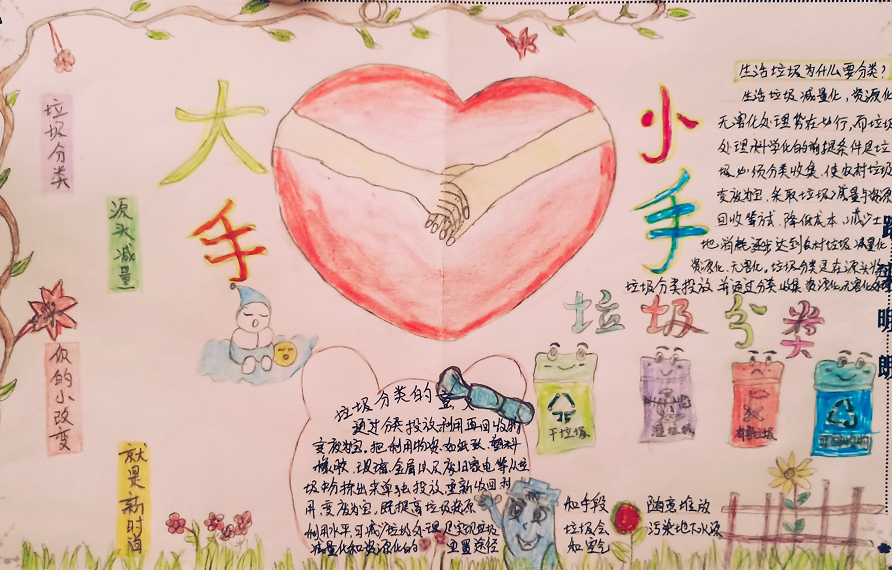 垃圾分类
源头减量
你的小改变
就是新时尚
大手
小手
垃圾分类
生活垃圾为什么要分类？
生活垃圾减量化，资源化
无害化处理势在必行，而垃圾
处理科学化的前提条件是垃
圾必须分类收集，使农村垃圾
变废为宝，采取垃圾减量于资源
回收等方式，降低成本，减少土
地消耗逐步达到农村垃圾减量化
资源化，无害化。垃圾分类是在源头将
垃圾分类投放，并通过分类收集
干垃圾
湿垃圾
有害垃圾
可回收物
垃圾分类的意义
通过分类投放利用再回收时
变废为宝，把利用物资，如纸张，塑料
橡胶，玻璃，金属以及废旧家电等从垃
圾中分拣出来单独投放，重新收回利
用，变废为宝，既提高垃圾资源
利用水平，可减少垃圾处理
减量化和资源化的重要途径
随意堆放
污染地下水源
垃圾会